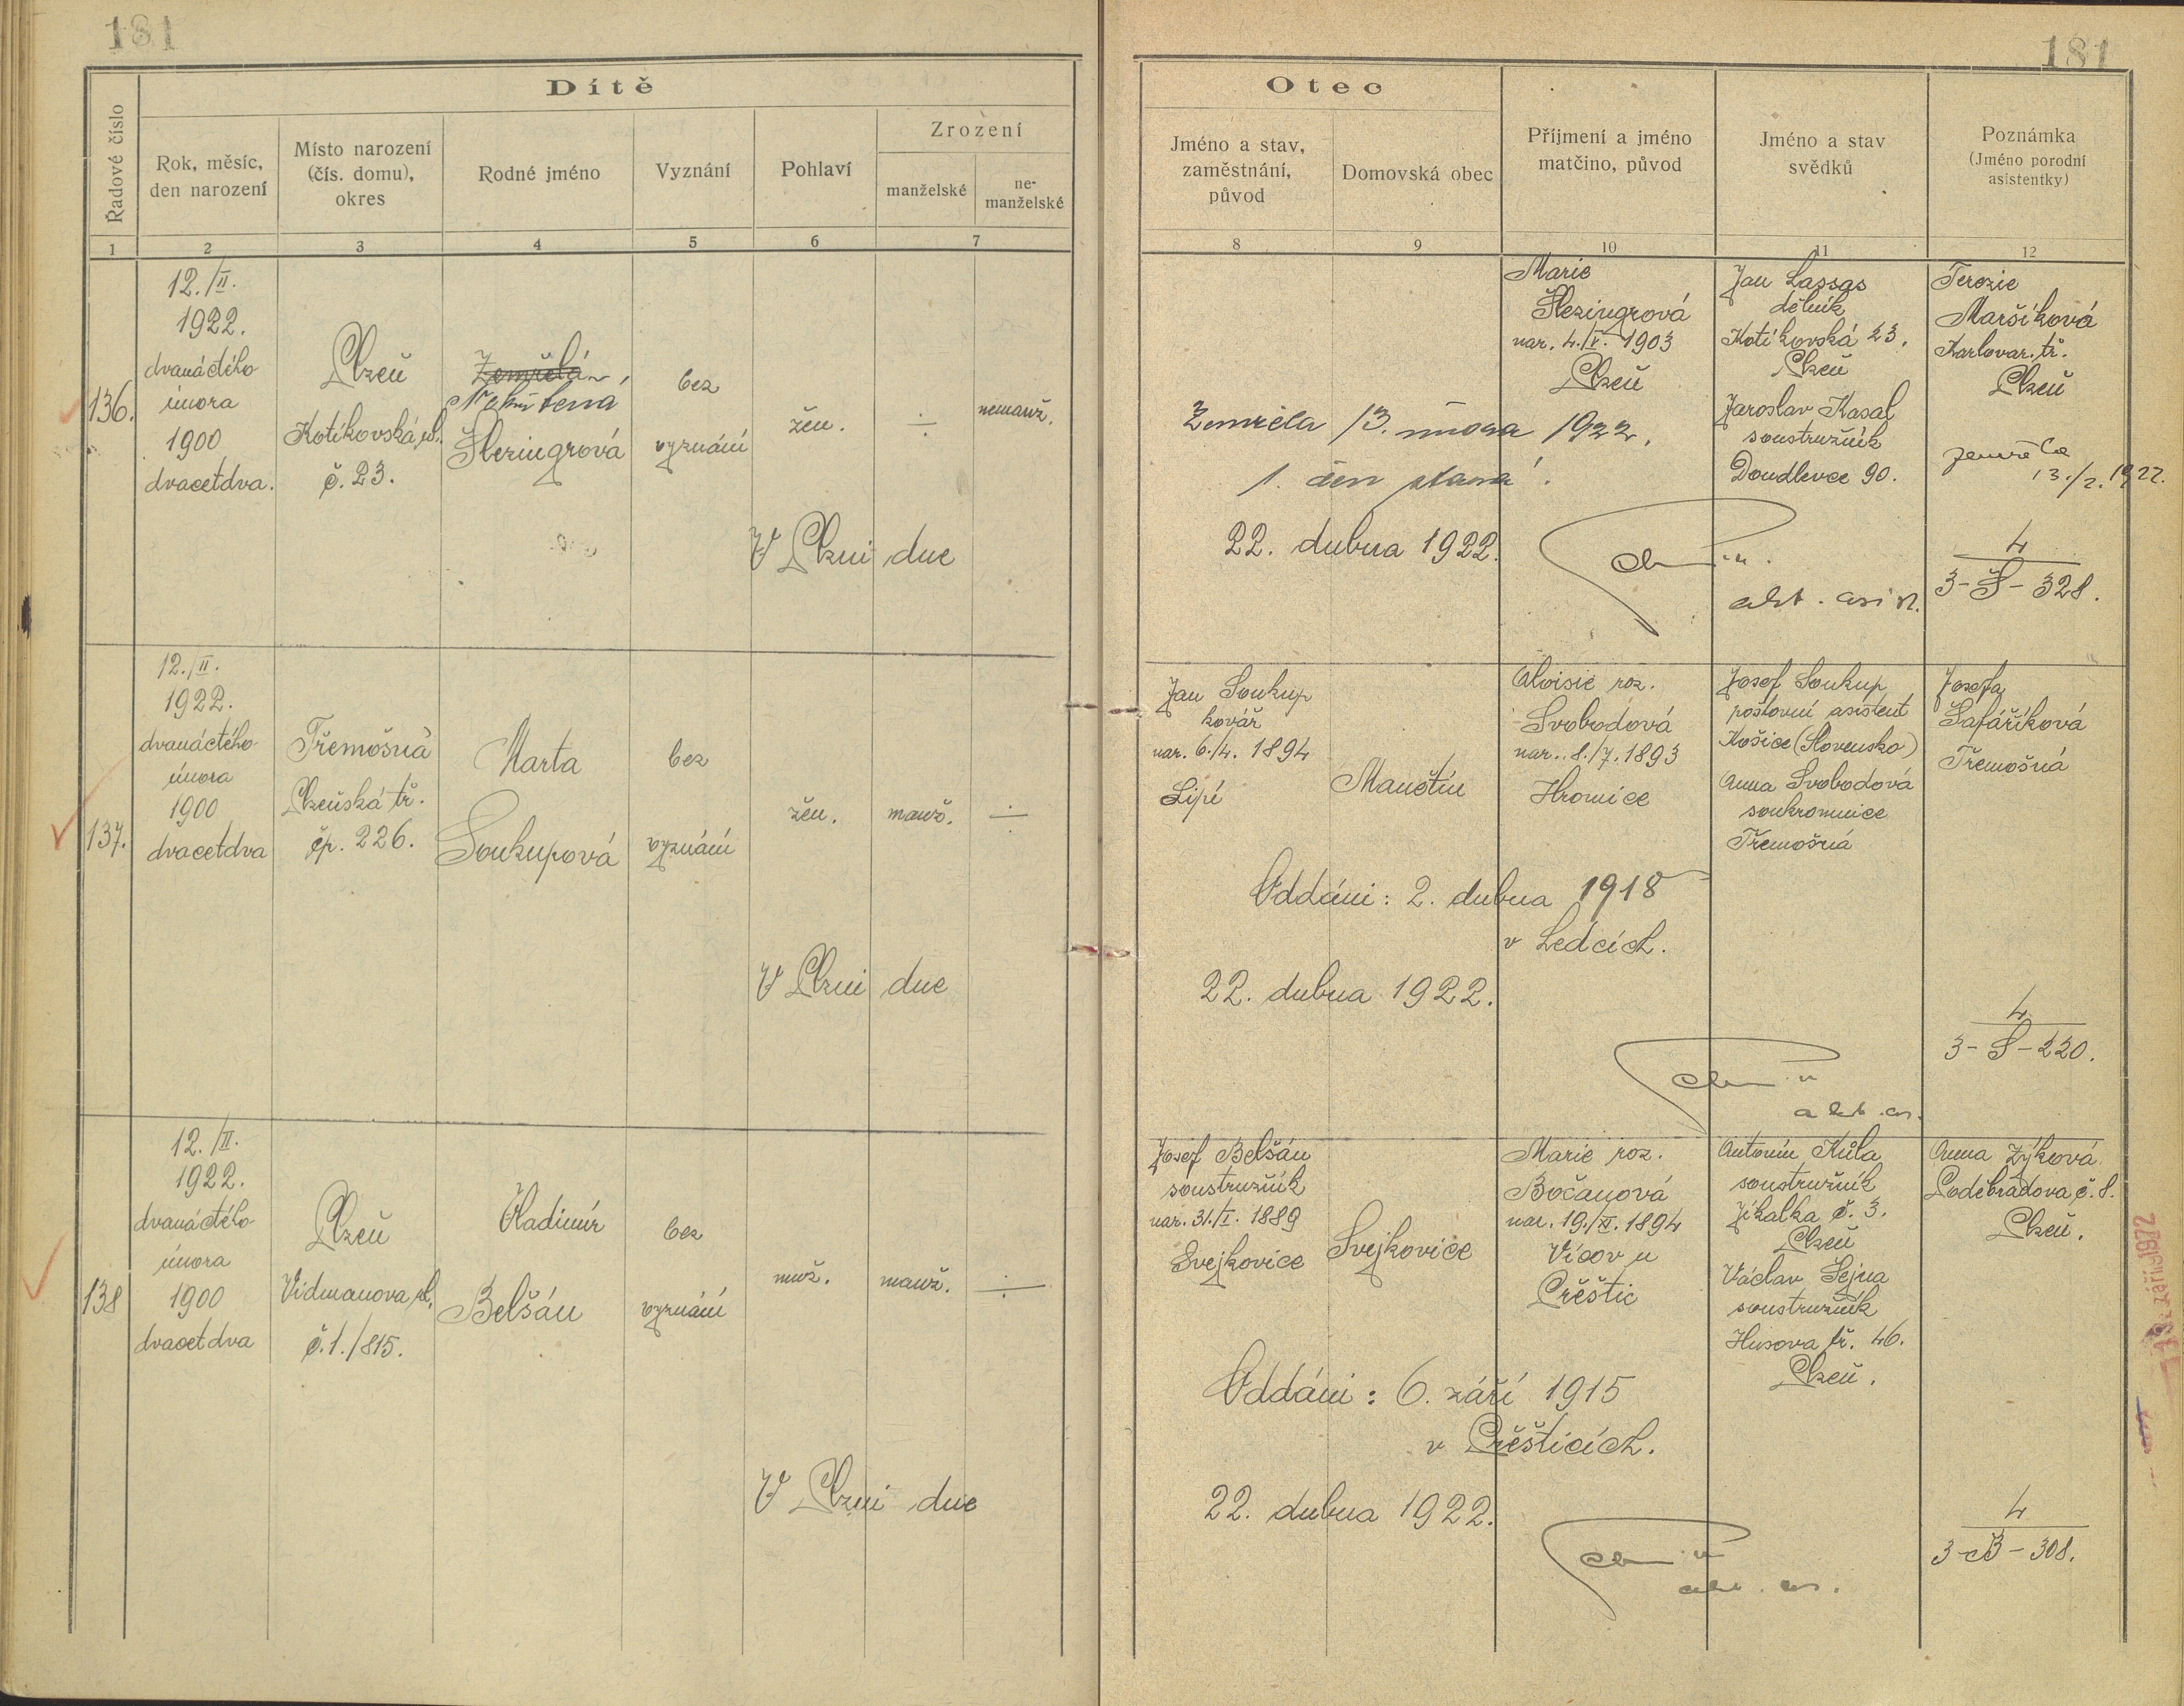 181
181
Dítě
Řadové číslo
Rok, měsíc,
den narození
Místo narození
(čís. domu),
okres
Rodné jméno
Vyznání
Pohlaví
Zrození
manželské
ne-
manželské
1 2 3 4 5 6 7
Otec
Jméno a stav,
zaměstnání,
původ
Domovská obec
Příjmení a jméno
matčino, původ
Jméno a stav
svědků
Poznámka
(Jméno porodní
asistentky)
8 9 10 11 12
136.
12./II.
1922.
dvanáctého
února
1900
dvacetdva.
Plzeň
Kotíkovská ul.
č. 23.
Zemřelá
Nekřtena
Šlezingrová
bez
vyznání
žen.
÷
nemanž.
V Plzni dne
Zemřela 13. února 1922.
1. den stará!
22. dubna 1922.
Marie
Šlezingrová
nar. 4./V. 1903
Plzeň
Jan Lassas
dělník
Kotíkovská 23.
Plzeň
Jaroslav Kasal
soustružník
Doudlevce 90.
akt. asist.
Terezie
Maršíková
Karlovar. tř.
Plzeň
zemřela
13./2. 1922.
4
3-Š-328.
137.
12./II.
1922.
dvanáctého
února
1900
dvacetdva
Třemošná
Plzeňská tř.
čp. 226.
Marta
Soukupová
bez
vyznání
žen.
manž.
÷
V Plzni dne
Jan Soukup
kovář
nar. 6./4. 1894
Lipí
Manětín
Aloisie roz.
Svobodová
nar. 8./7. 1893
Hromice
Josef Soukup
poštovní asistent
Košice (Slovensko)
Anna Svobodová
soukromnice
Třemošná
Josefa
Šafaříková
Třemošná
Oddáni: 2. dubna 1918
v Ledcích.
22. dubna 1922.
akt. as.
4
3-S-220.
138
12./II.
1922.
dvanáctého
února
1900
dvacetdva
Plzeň
Vidmanova ul.
č. 1./815.
Vladimír
Belšán
bez
vyznání
muž.
manž.
÷
V Plzni dne
Josef Belšán
soustružník
nar. 31./I. 1889
Svejkovice
Svejkovice
Marie roz.
Bočanová
nar. 19./XI. 1894
Vícov u
Přeštic
Antonín Kůla
soustružník
Jikalka č. 3.
Plzeň
Václav Šejna
soustružník
Husova tř. 46.
Plzeň.
Anna Zýková
Poděbradova č. 8.
Plzeň.
Oddáni: 6. září 1915
v Přešticích.
22. dubna 1922.
akt. as.
4
3-B-308.